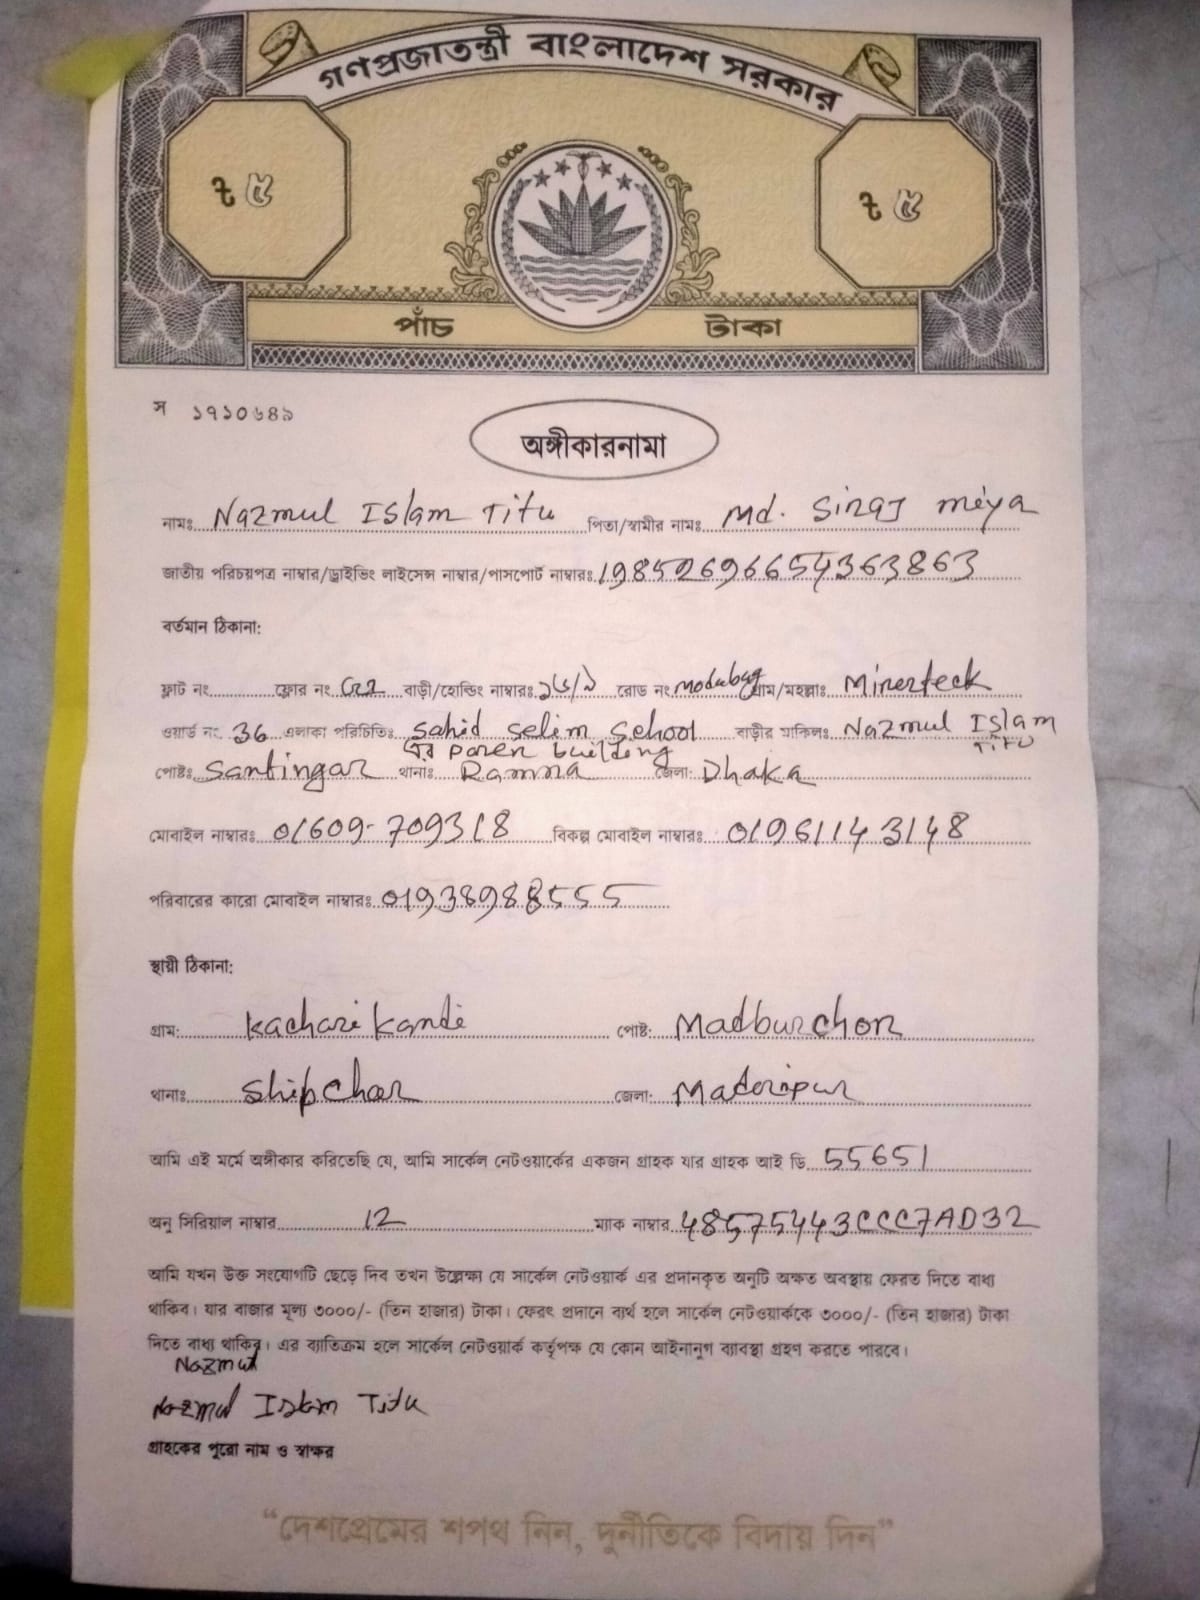 গণপ্রজাতন্ত্রী বাংলাদেশ সরকার
৳ ৫ ৳ ৫
পাঁচ টাকা
স ১৭১০৬৪৯
অঙ্গীকারনামা
নামঃ Nazmul Islam Titu পিতা/স্বামীর নামঃ Md. Siraj miya
জাতীয় পরিচয়পত্র নাম্বার/ড্রাইভিং লাইসেন্স নাম্বার/পাসপোর্ট নাম্বারঃ 19852696654363863
বর্তমান ঠিকানা:
ফ্লাট নং ফ্লোর নং বাড়ী/হোল্ডিং নাম্বারঃ ১৬/৯ রোড নং Modubag গ্রাম/মহল্লাঃ Mirerteck
ওয়ার্ড নং 36 এলাকা পরিচিতিঃ Sahid Selim School বাড়ীর মালিকঃ Nazmul Islam Titu
এর paren building
পোষ্টঃ Santingar থানাঃ Ramna জেলা: Dhaka
মোবাইল নাম্বারঃ 01609-709318 বিকল্প মোবাইল নাম্বারঃ 01961143148
পরিবারের কারো মোবাইল নাম্বারঃ 01938988555
স্থায়ী ঠিকানা:
গ্রাম: Kacharikandi পোষ্ট: Madburchor
থানাঃ Shibchar জেলা: Maderipur
আমি এই মর্মে অঙ্গীকার করিতেছি যে, আমি সার্কেল নেটওয়ার্কের একজন গ্রাহক যার গ্রাহক আই ডি 55651
অনু সিরিয়াল নাম্বার 12 ম্যাক নাম্বার 48575443CCC7AD32
আমি যখন উক্ত সংযোগটি ছেড়ে দিব তখন উল্লেক্ষ্য যে সার্কেল নেটওয়ার্ক এর প্রদানকৃত অনুটি অক্ষত অবস্থায় ফেরত দিতে বাধ্য
থাকিব। যার বাজার মূল্য ৩০০০/- (তিন হাজার) টাকা। ফেরৎ প্রদানে ব্যর্থ হলে সার্কেল নেটওয়ার্ককে ৩০০০/- (তিন হাজার) টাকা
দিতে বাধ্য থাকিব। এর ব্যাতিক্রম হলে সার্কেল নেটওয়ার্ক কর্তৃপক্ষ যে কোন আইনানুগ ব্যাবস্থা গ্রহণ করতে পারবে।
Nazmul
Nazmul Islam Titu
গ্রাহকের পুরো নাম ও স্বাক্ষর
“দেশপ্রেমের শপথ নিন, দুর্নীতিকে বিদায় দিন”